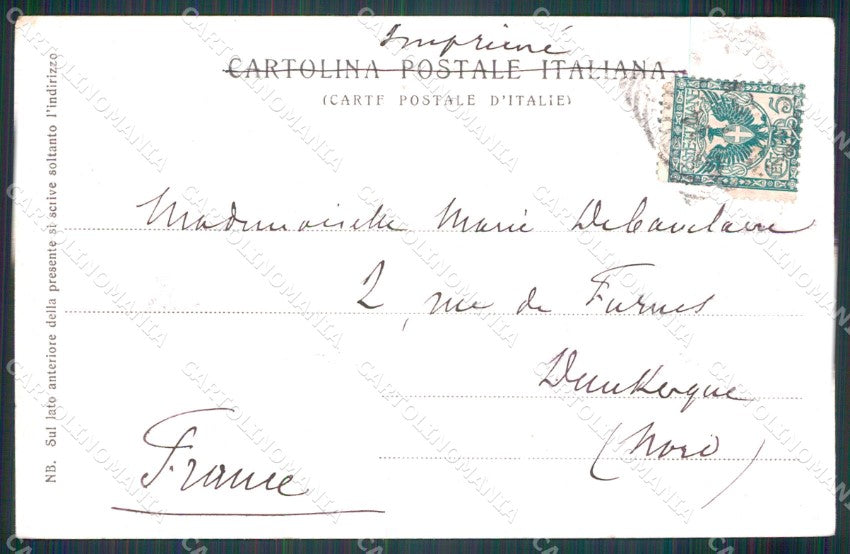 Imprimé
CARTOLINA POSTALE ITALIANA
(CARTE POSTALE D'ITALIE)
Mademoiselle Marie Debavelaere
2, rue de Furnes
Dunkerque
(Nord)
France
NB. Sul lato anteriore della presente si scrive soltanto l'indirizzo
POSTE ITALIANE
5
CARTOLINOMANIA